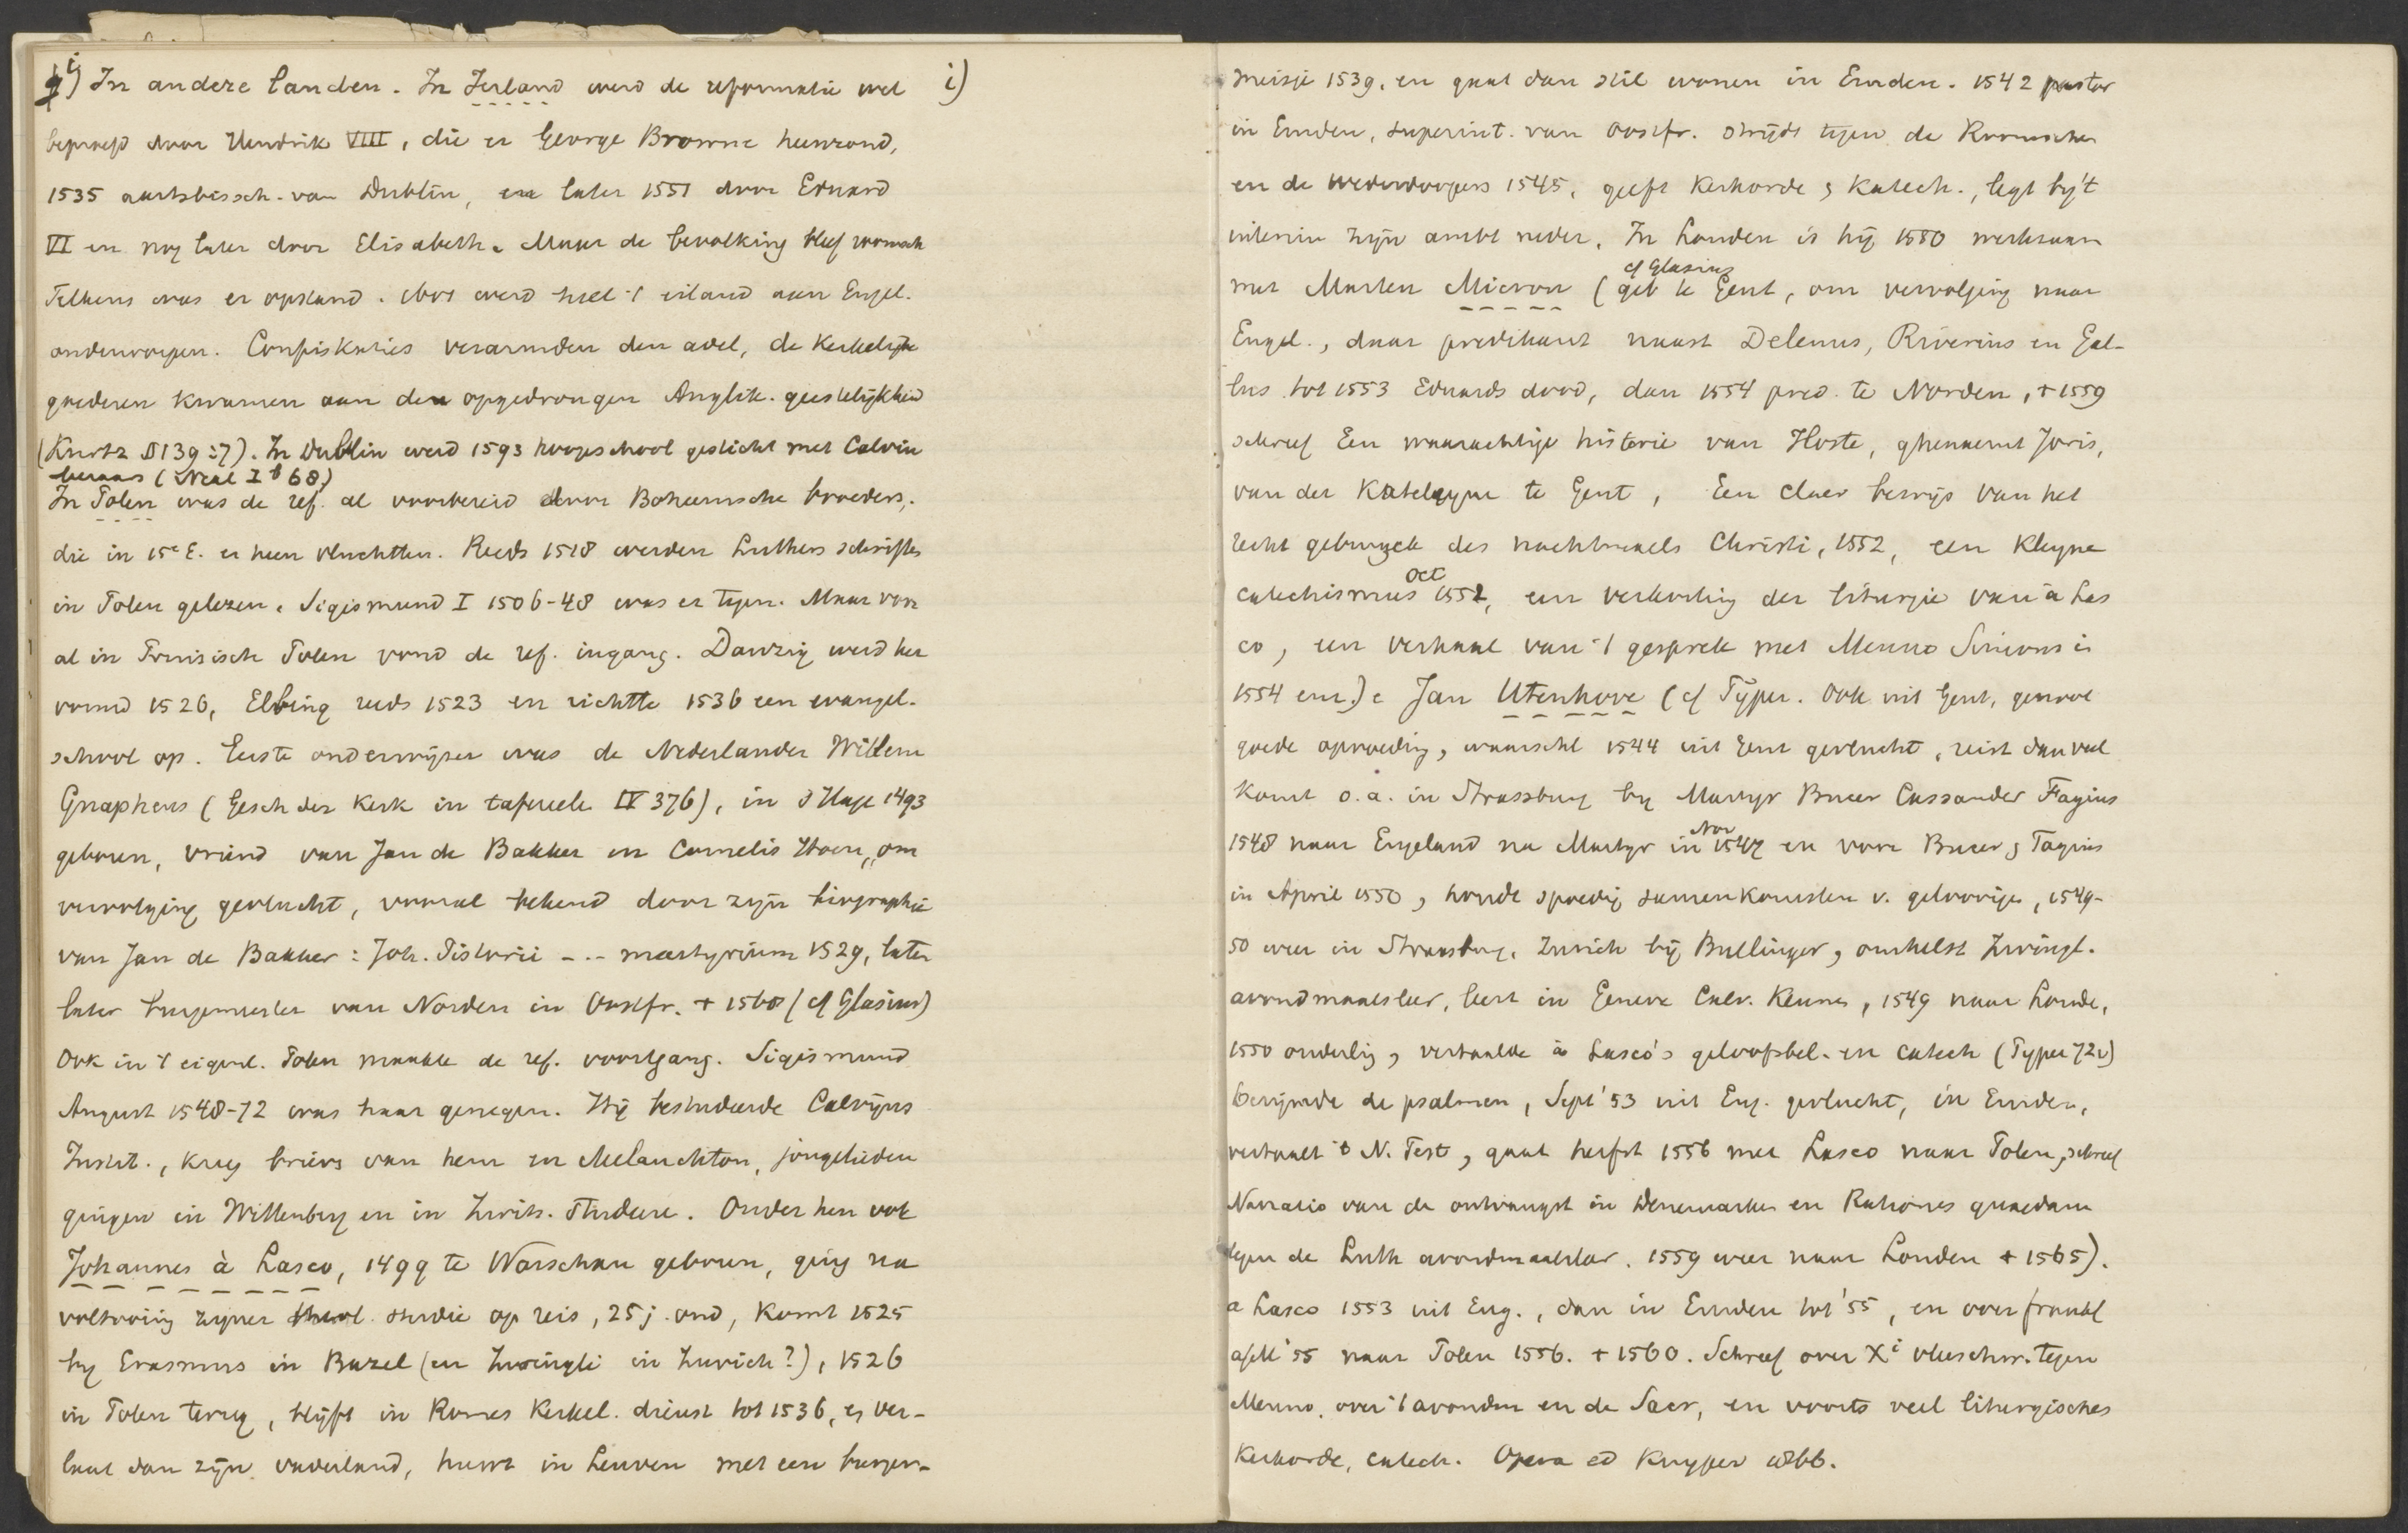 i) In andere landen. In Ierland werd de reformatie wel
beproefd door Hendrik VIII, die er George Browne heenzond,
1535 aartsbissch. van Dublin, en later 1551 door Eduard
VI en nog later door Elisabeth. Maar de bevolking bleef roomsch
Telkens was er opstand. Doch werd heel 't eiland aan Engel.
onderworpen. Confiskaties verarmden den adel, de kerkelijke
goederen kwamen aan den opgedrongen Anglik. geestelijkheid
(Kurtz § 139:7). In Dublin werd 1593 hoogeschool gesticht met Calvin
leeraars (Neal I 68)
In Polen was de ref. al voorbereid door Boheemsche broeders,
die in 15e E. er heen vluchtten. Reeds 1518 werden Luthers schriften
in Polen gelezen. Sigismund I 1506-48 was er tegen. Maar voor
al in Pruisisch Polen vond de ref. ingang. Danzig werd her
vormd 1526, Elbing reeds 1523 en richtte 1536 een evangel.
school op. Eerste onderwijzer was de Nederlander Willem
Gnapheus (Gesch der Kerk in tafereele IV 376), in 's Hage 1493
geboren, vriend van Jan de Bakker en Cornelis Hoen, om
vervolging gevlucht, vooral bekend door zijn biographie
van Jan de Bakker: Joh. Pistorii - . - martyrium 1529, later
later burgemeester van Norden in Oostfr. + 1568 (cf Glasius)
Ook in 't eigenl. Polen maakte de ref. voortgang. Sigismund
August 1548-72 was haar genegen. Hij bestudeerde Calvijns
Instit., kreeg brieven van hem en Melanchton, jongelieden
gingen in Wittenberg en in Zwits. studeeren. Onder hen ook
Johannes à Lasco, 1499 te Warschau geboren, ging na
voltooiing zijner theol. studie op reis, 25 j. oud, komt 1525
by Erasmus in Bazel (en Zwingli in Zurich?), 1526
in Polen terug, blijft in Romes Kerkel. dienst tot 1536, ver-
laat dan zijn vaderland, huwt in Leuven met een burger-
i)
meisje 1539, en gaat dan stil wonen in Emden. 1542 pastor
in Emden, superint. van Oostfr. strijdt tegen de Roomschen
en de wederdoopers 1545, geeft Kerkorde & Katech., legt by 't
interim zijn ambt neder. In Londen is hij 1550 werkzaam
cf Glasius
met Marten Micron (geb te Gent, om vervolging naar
Engel., daar predikant naast Delenus, Riverius en Gal-
lus tot 1553 Eduards dood, dan 1554 pred. te Norden, + 1559
schreef Een waarachtige historie van Hoste, ghenaemt Joris,
van der Katelyne te Gent, Een claer bewijs van het
recht gebruyck des nachtmaels Christi, 1552, een kleyne
Oct
catechismus 1552, een verkorting der liturgie van à Las
co, een verhaal van 't gesprek met Menno Simons in
1554 enz.). Jan Utenhove (cf Pijper. Ook uit Gent, genoot
goede opvoeding, waarschl 1544 uit Gent gevlucht, reist dan veel
komt o.a. in Strassburg by Martyr Bucer Cassander Fagius
Nov
1548 naar Engeland na Martyr in 1547 en voor Bucer & Fagius
in April 1550, houdt spoedig samenkomsten v. geloovigen, 1549-
50 weer in Strassburg, Zurich bij Bullinger, omhelst Zwingl.
avondmaalsleer, leert in Geneve Calv. kennen, 1549 naar Londe,
1550 ouderling, vertaalde à Lasco's geloofsbel. en catech (Pijper 72v)
berijmde de psalmen, Sept '53 uit Eng. gevlucht, in Emden,
vertaalt 't N. Test, gaat herfst 1556 met Lasco naar Polen, schreef
Narratio van de ontvangst in Denemarken en Rationes quaedam
tegen de Luth avondmaalsleer. 1559 weer naar Londen + 1565).
a Lasco 1553 uit Eng., dan in Emden tot '55, en over frankf
a/M '55 naar Polen 1556. + 1560. Schreef over Xi vleeschw. tegen
Menno, over 't avondm en de Sacr, en voorts veel liturgisches
Kerkorde, catech. Opera ed Kuyper 1866.